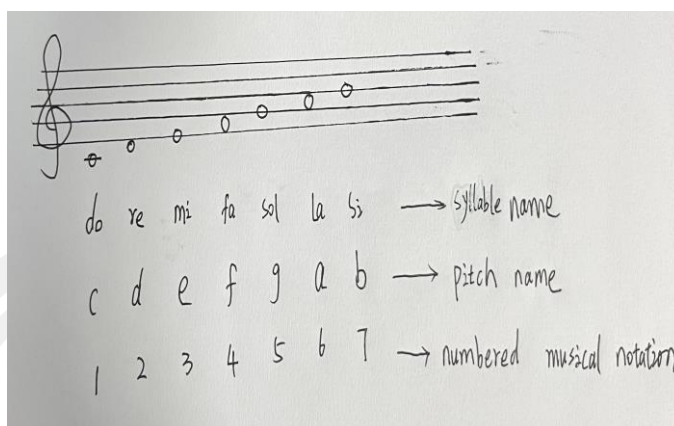 do re mi fa sol la si → syllable name
c d e f g a b → pitch name
1 2 3 4 5 6 7 → numbered musical notation